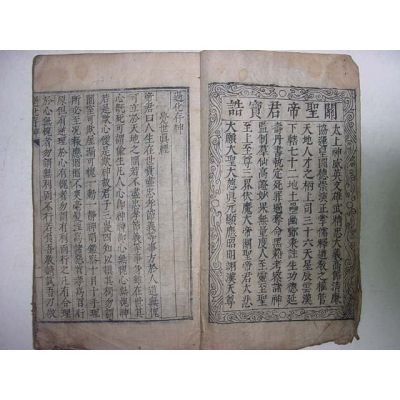 關聖帝君寶誥
太上神威英文雄武精忠大義高節清廉
協運皇圖德崇演正掌儒釋道教之權管
天地人才之柄上司三十六天星辰雲漢
下轄七十二地土壘幽酆秉注生功德延
壽丹書執定死罪過奪命黑籍考察諸神
監制羣仙高證妙果無量度人至靈至聖
至上至尊三界伏魔大帝關聖帝君大悲
大願大聖大慈真元顯應昭明翊漢天尊
過化存神
覺世真經
帝君曰人生在世貴盡忠孝節義等事方於人道無愧
可立於天地之間若不盡忠孝節義等事身雖在世其
心既死可謂偷生凡人心即神神即心無愧心無愧神
若是欺心便是欺神故君子三畏四知以慎其獨勿謂
闇室可欺屋漏可愧一動一靜神明鑒察十目十手理
所必至況報應昭昭不爽毫髮淫為諸惡首孝為百行
原但有逆理於心有愧者勿謂有利而行之凡有合理
於心無愧者勿謂無利而不行若負吾教請試吾刀敬